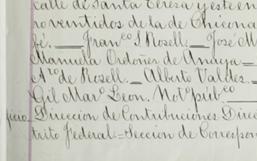 calle de Santa Teresa y este en
noventidos de la de Chicona
Franco. S. Rosell. José M
Manuela Ordoñez de Anaya
de Rosell. Alberto Valdez.
Gil Mar. Leon. Not. púb.co
Direccion de Contribuciones Direc
trito Federal. Seccion de Correspon